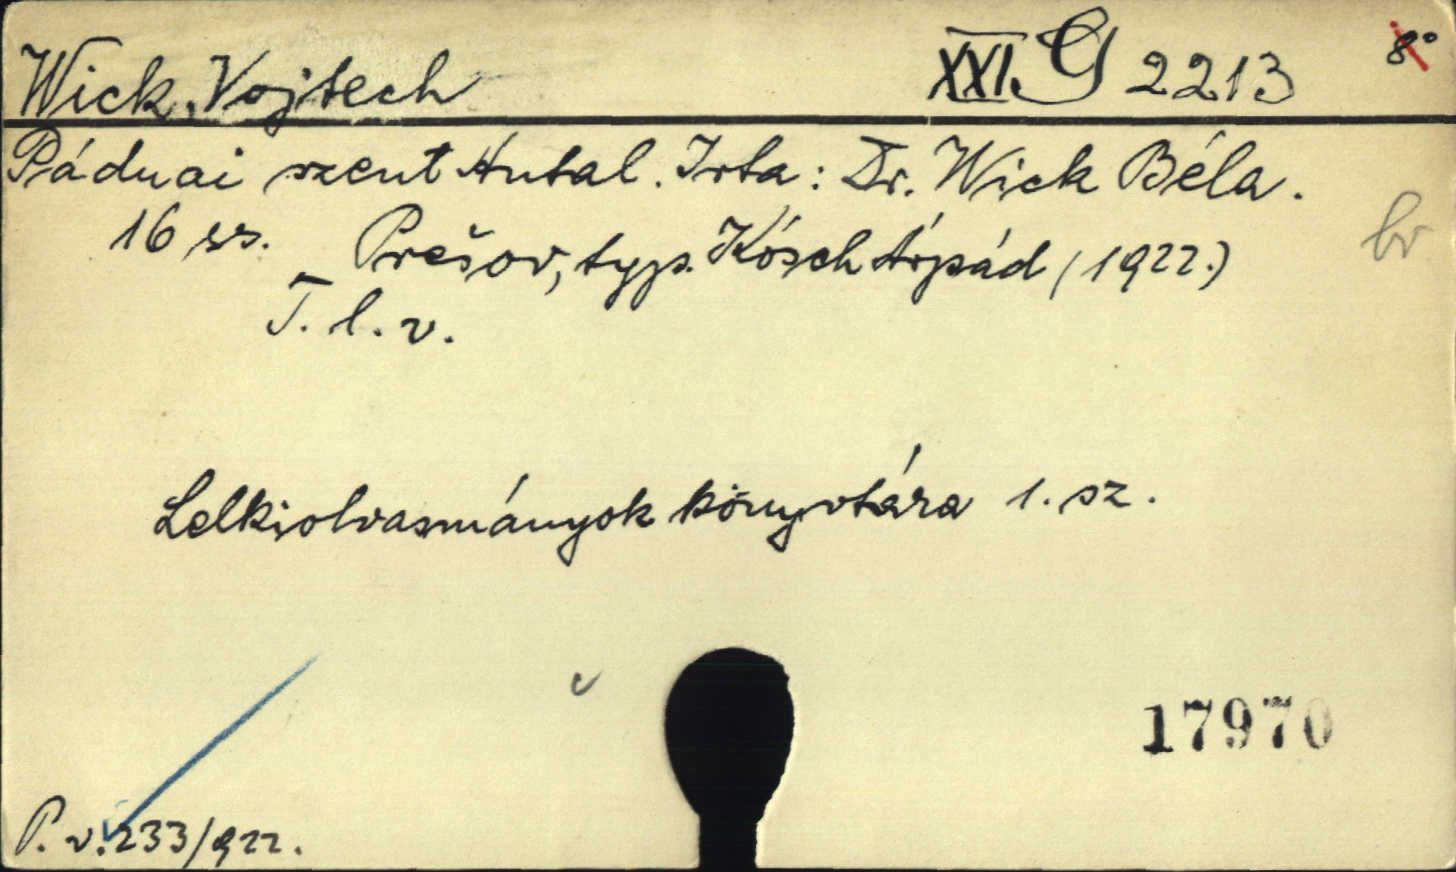 Wick, Vojtech XXI. G 2213 8°
Páduai szent Antal. Irta: Dr. Wick Béla.
16 ss. Prešov, typ. Kósch Árpád (1922.) br
T. l. v.
Lelkiolvasmányok könyvtára 1. sz.
17970
P. v. 233/922.